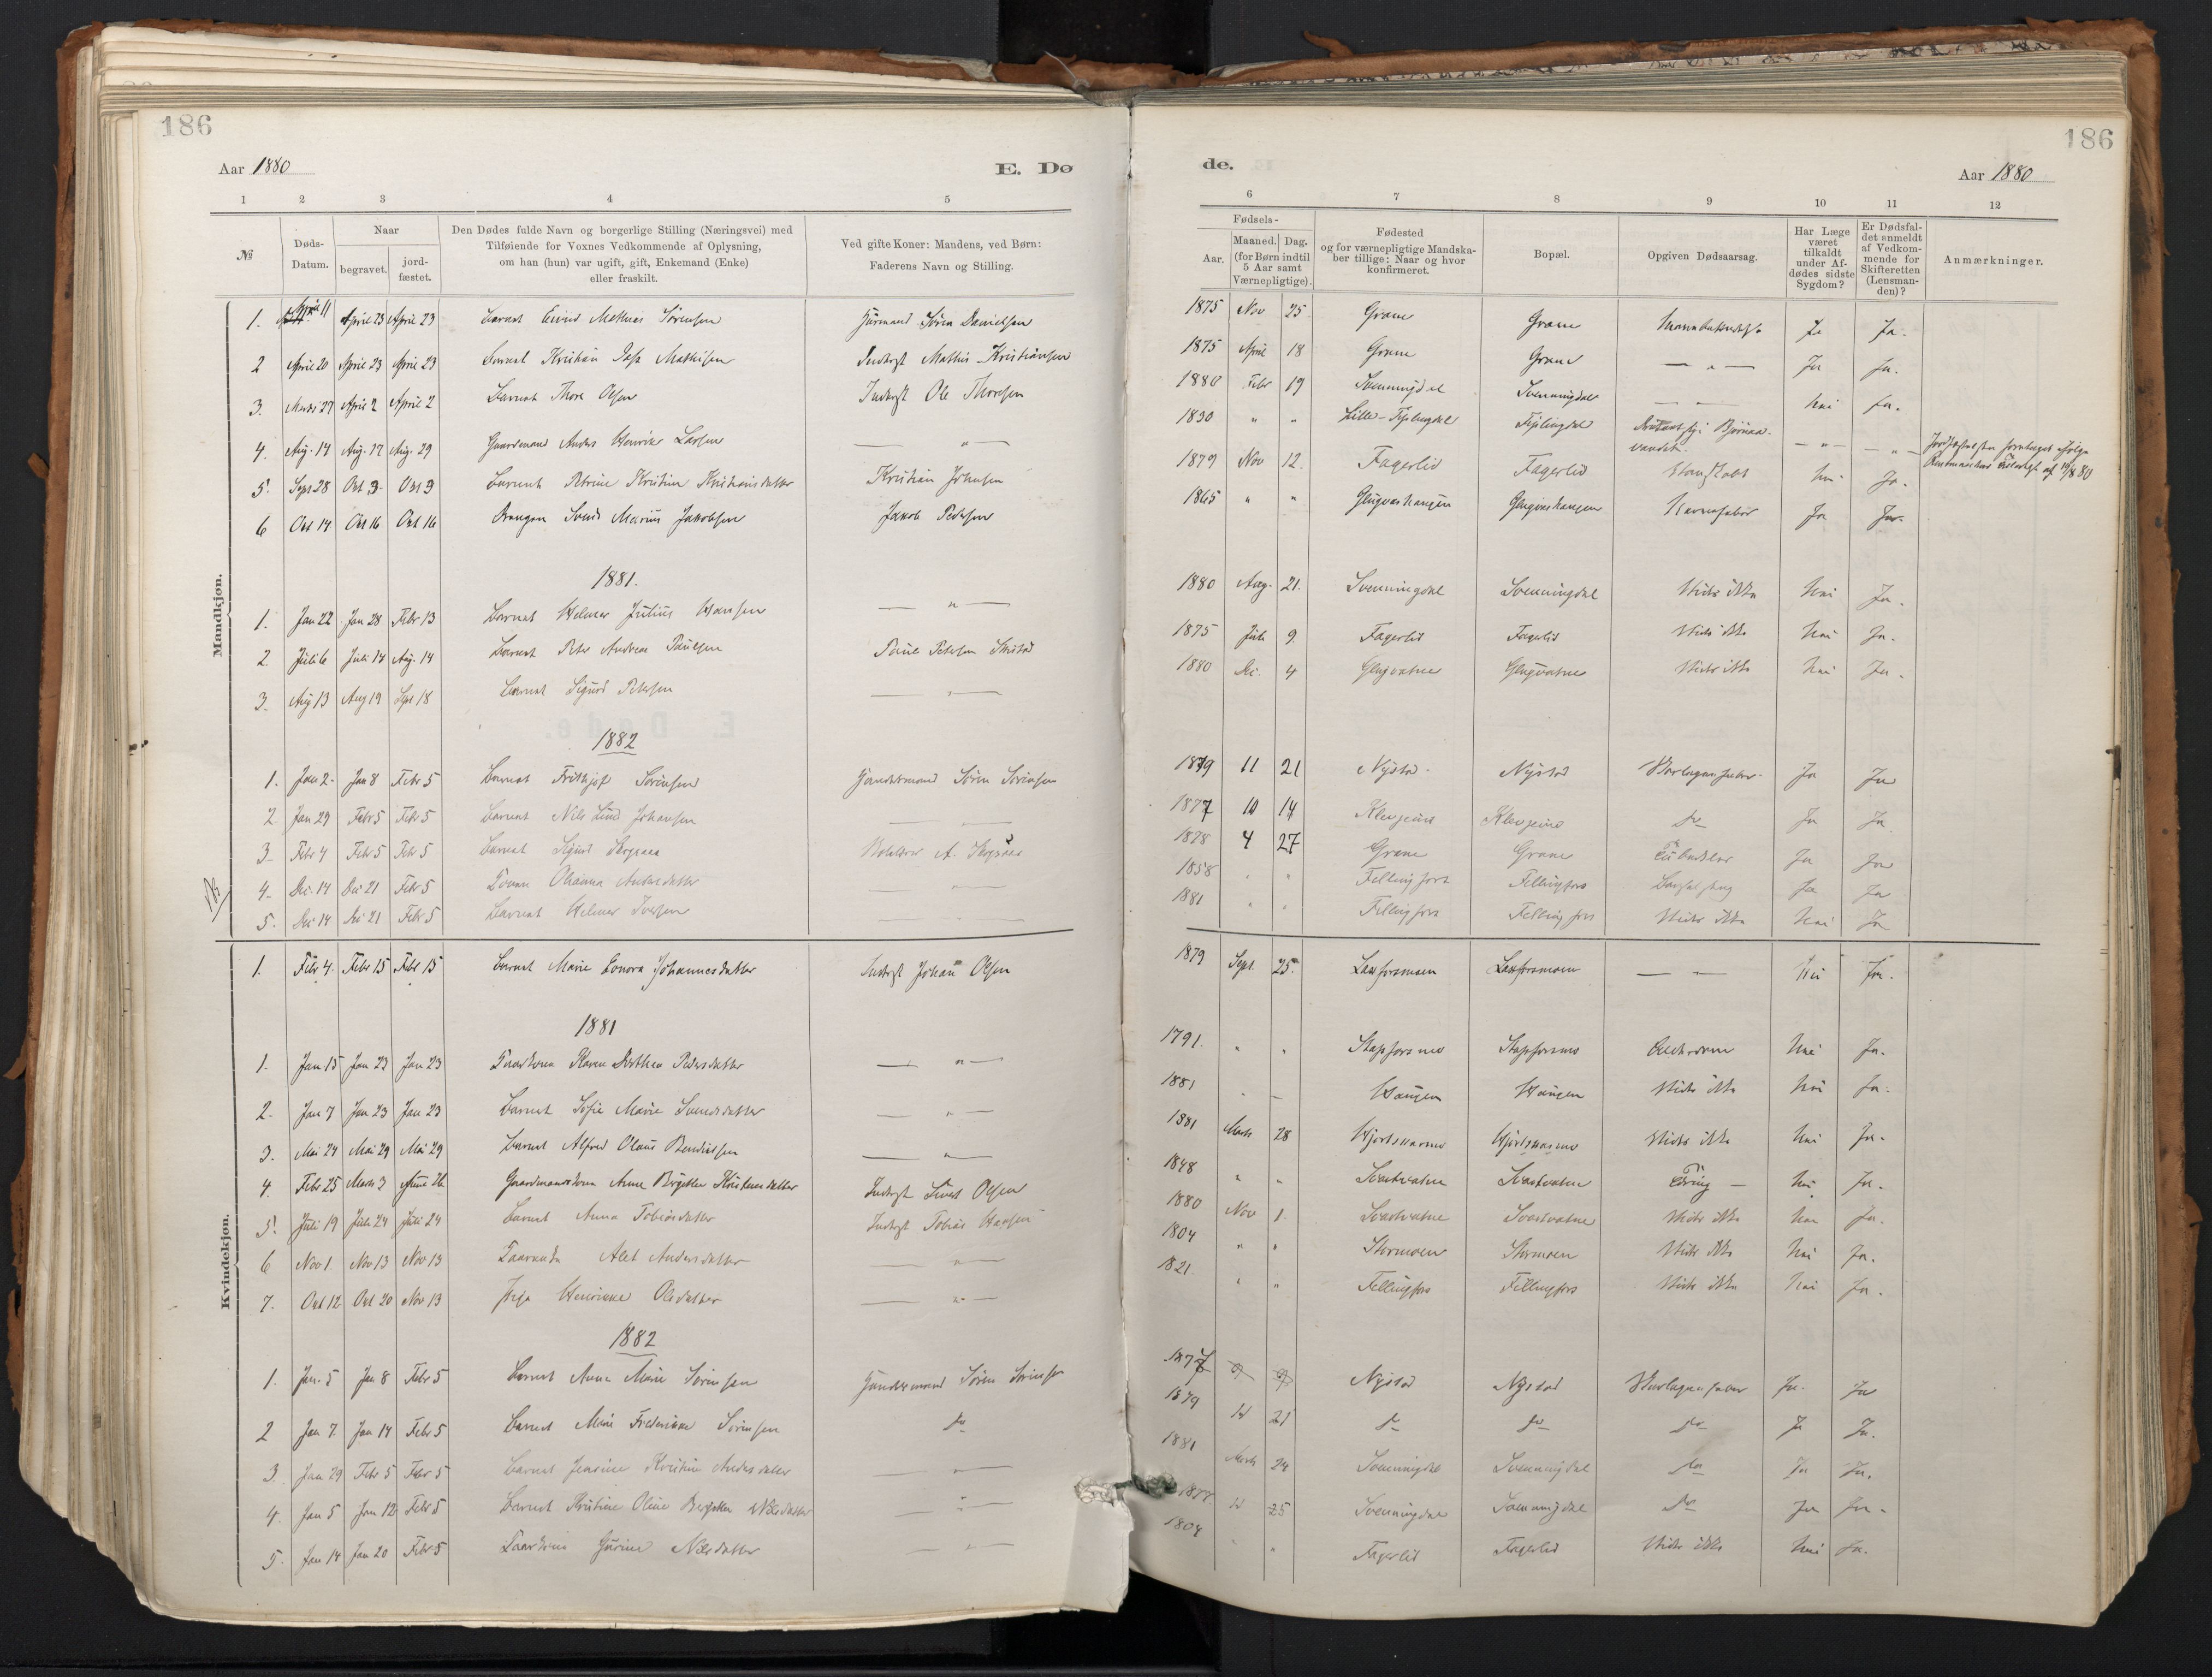 186
186
Aar 1880
E. Dø
de.
Aar 1880
1 2 3 4 5
6 7 8 9 10 11 12
№
Døds-
Datum.
Naar
begravet.
jord-
fæstet.
Den Dødes fulde Navn og borgerlige Stilling (Næringsvei) med
Tilføiende for Voxnes Vedkommende af Oplysning,
om han (hun) var ugift, gift, Enkemand (Enke)
eller fraskilt.
Ved gifte Koner: Mandens, ved Børn:
Faderens Navn og Stilling.
Fødsels-
Aar.
Maaned.
Dag.
(for Børn indtil
5 Aar samt
Værnepligtige).
Fødested
og for værnepligtige Mandska-
ber tillige: Naar og hvor
konfirmeret.
Bopæl.
Opgiven Dødsaarsag.
Har Læge
været
tilkaldt
under Af-
dødes sidste
Sygdom?
Er Dødsfal-
det anmeldt
af Vedkom-
mende for
Skifteretten
(Lensman-
den)?
Anmærkninger.
Mandkjøn.
1. April 11 April 23 April 23 Barnet Eivind Mathias Sørensen Søren Danielsen 1875 Nov 25 Grane Grane Ja Ja.
2 April 20 April 23 April 23 Barnet Kristian Mathisen Inderst Mathis Kristiansen 1875 April 18 Grane Grane — " — Ja Ja.
3. Marts 27 April 2 April 2 Barnet Thore Olsen Inderst Ole Thoresen 1880 Febr 19 Svenningdal Svenningdal — — Nei Ja.
4. Aug. 14 Aug. 17 Aug. 29 Gaardmand Anders Henrik Larsen — " — 1830 " " Lille-Fiplingdal Fiplingdal — " — — " —
5. Sept 28 Okt 3 Okt 3 Barnet Petrine Kristine Kristiansdatter Kristian Johnsen 1879 Nov 12. Fagerlid Fagerlid Nei Ja.
6 Okt 14 Okt 16 Okt 16 Drengen Marius Jakobsen Jakob Pedersen 1865 " " Ja Ja.
1881.
1. Jan 22 Jan 28 Febr 13 Barnet Helmer Julius Hansen — " — 1880 Aug. 21. Svenningdal Svenningdal Vides ikke Nei Ja.
2. Juli 6 Juli 14 Aug. 14 Barnet Peter Andreas Paulsen Paul Petersen 1875 Juli 9 Fagerlid Fagerlid Vides ikke Nei Ja.
3. Aug 13 Aug 19 Sept 18 Barnet Sigurd Petersen — " — 1880 Dec. 4 Glugvatne Glugvatne Vides ikke Nei Ja.
1882
1. Jan 2 Jan 8 Febr 5 Barnet Frithjof Sørensen Søren Sørensen 1879 11 21 Nystad Nystad Skarlagensfeber Ja Ja
2 Jan 29 Febr 5 Febr 5 Barnet Nils Johansen — — 1877 10 14 do Ja Ja
3. Febr 4 Febr 5 Febr 5 Barnet Sigurd 1878 4 27 Grane Grane Ja Ja
4. Dec. 14 Dec 21 Febr 5 Andersdatter — " — 1858 " " Fellingfors Fellingfors Ja Ja
5. Dec 14 Dec 21 Febr 5 Barnet Helmer Iversen — " — 1881 " " Fellingfors Fellingfors Vides ikke Nei Ja
Kvindekjøn.
1. Febr 4. Febr 15 Febr 15 Barnet Marie Johannesdatter Inderst Johan Olsen 1879 Sept. 25. Laxforsmoen Laxforsmoen — " — Nei Ja.
1881
1. Jan 15 Jan 23 Jan 23 Karen Dorthea Pedersdatter — " — 1791. " " Stapforsmo Stapforsmo Alderdom Nei Ja.
2. Jan 7 Jan 23 Jan 23 Barnet Sofie Marie Svendsdatter — " — 1881 " — Haugen Haugen Vides ikke Nei Ja.
3. Mai 24 Mai 29 Mai 29 Barnet Alfred Olaus Bendiksen — " — 1881 Marts 28 Vides ikke Nei Ja.
4. Febr 25 Marts 2 Juni 26 Gaardmandskone Anne Birgitte Kristensdatter Inderst Olsen 1848 " " Svartvatne Svartvatne Tæring — Nei Ja.
5. Juli 19 Juli 24 Juli 24 Barnet Anna Tobiasdatter Inderst Tobias Hansen 1880 Nov 1. Svartvatne Svartvatne Vides ikke Nei Ja.
6 Nov 1. Nov 13 Nov 13 Alet Andersdatter — " — 1804 " " Stormoen Stormoen Vides ikke Nei Ja.
7. Okt 12 Okt 20 Nov 13 Pige Henrikke Olsdatter — " — 1821 " " Fellingfors Fellingfors Vides ikke Nei Ja.
1882
1. Jan. 5 Jan 8 Febr 5 Barnet Anna Marie Sørensen Søren Sørensen 1877 9 9 Nystad Nystad Skarlagensfeber Ja. Ja
2 Jan 7. Jan 14 Febr 5 Barnet Marie Frederikke Sørensen do 1879 21 do do do Ja Ja.
3. Jan 29 Febr 5 Febr 5 Barnet Jensine Kristine Andersdatter — " — 1881 Marts 24 Svenningdal Svenningdal do Ja Ja.
4. Jan 5 Jan 12 Febr 5 Barnet Kristine Oline Nilsdatter — " — 25 Svenningdal Svenningdal do Ja Ja.
5. Jan 14 Jan 20 Febr 5 Nilsdatter — " — 1804 " " Fagerlid Fagerlid Vides ikke Nei Ja.